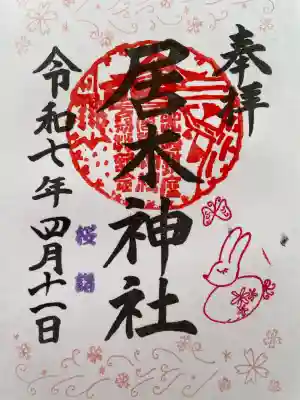 奉拝
居木神社
令和七年四月十一日